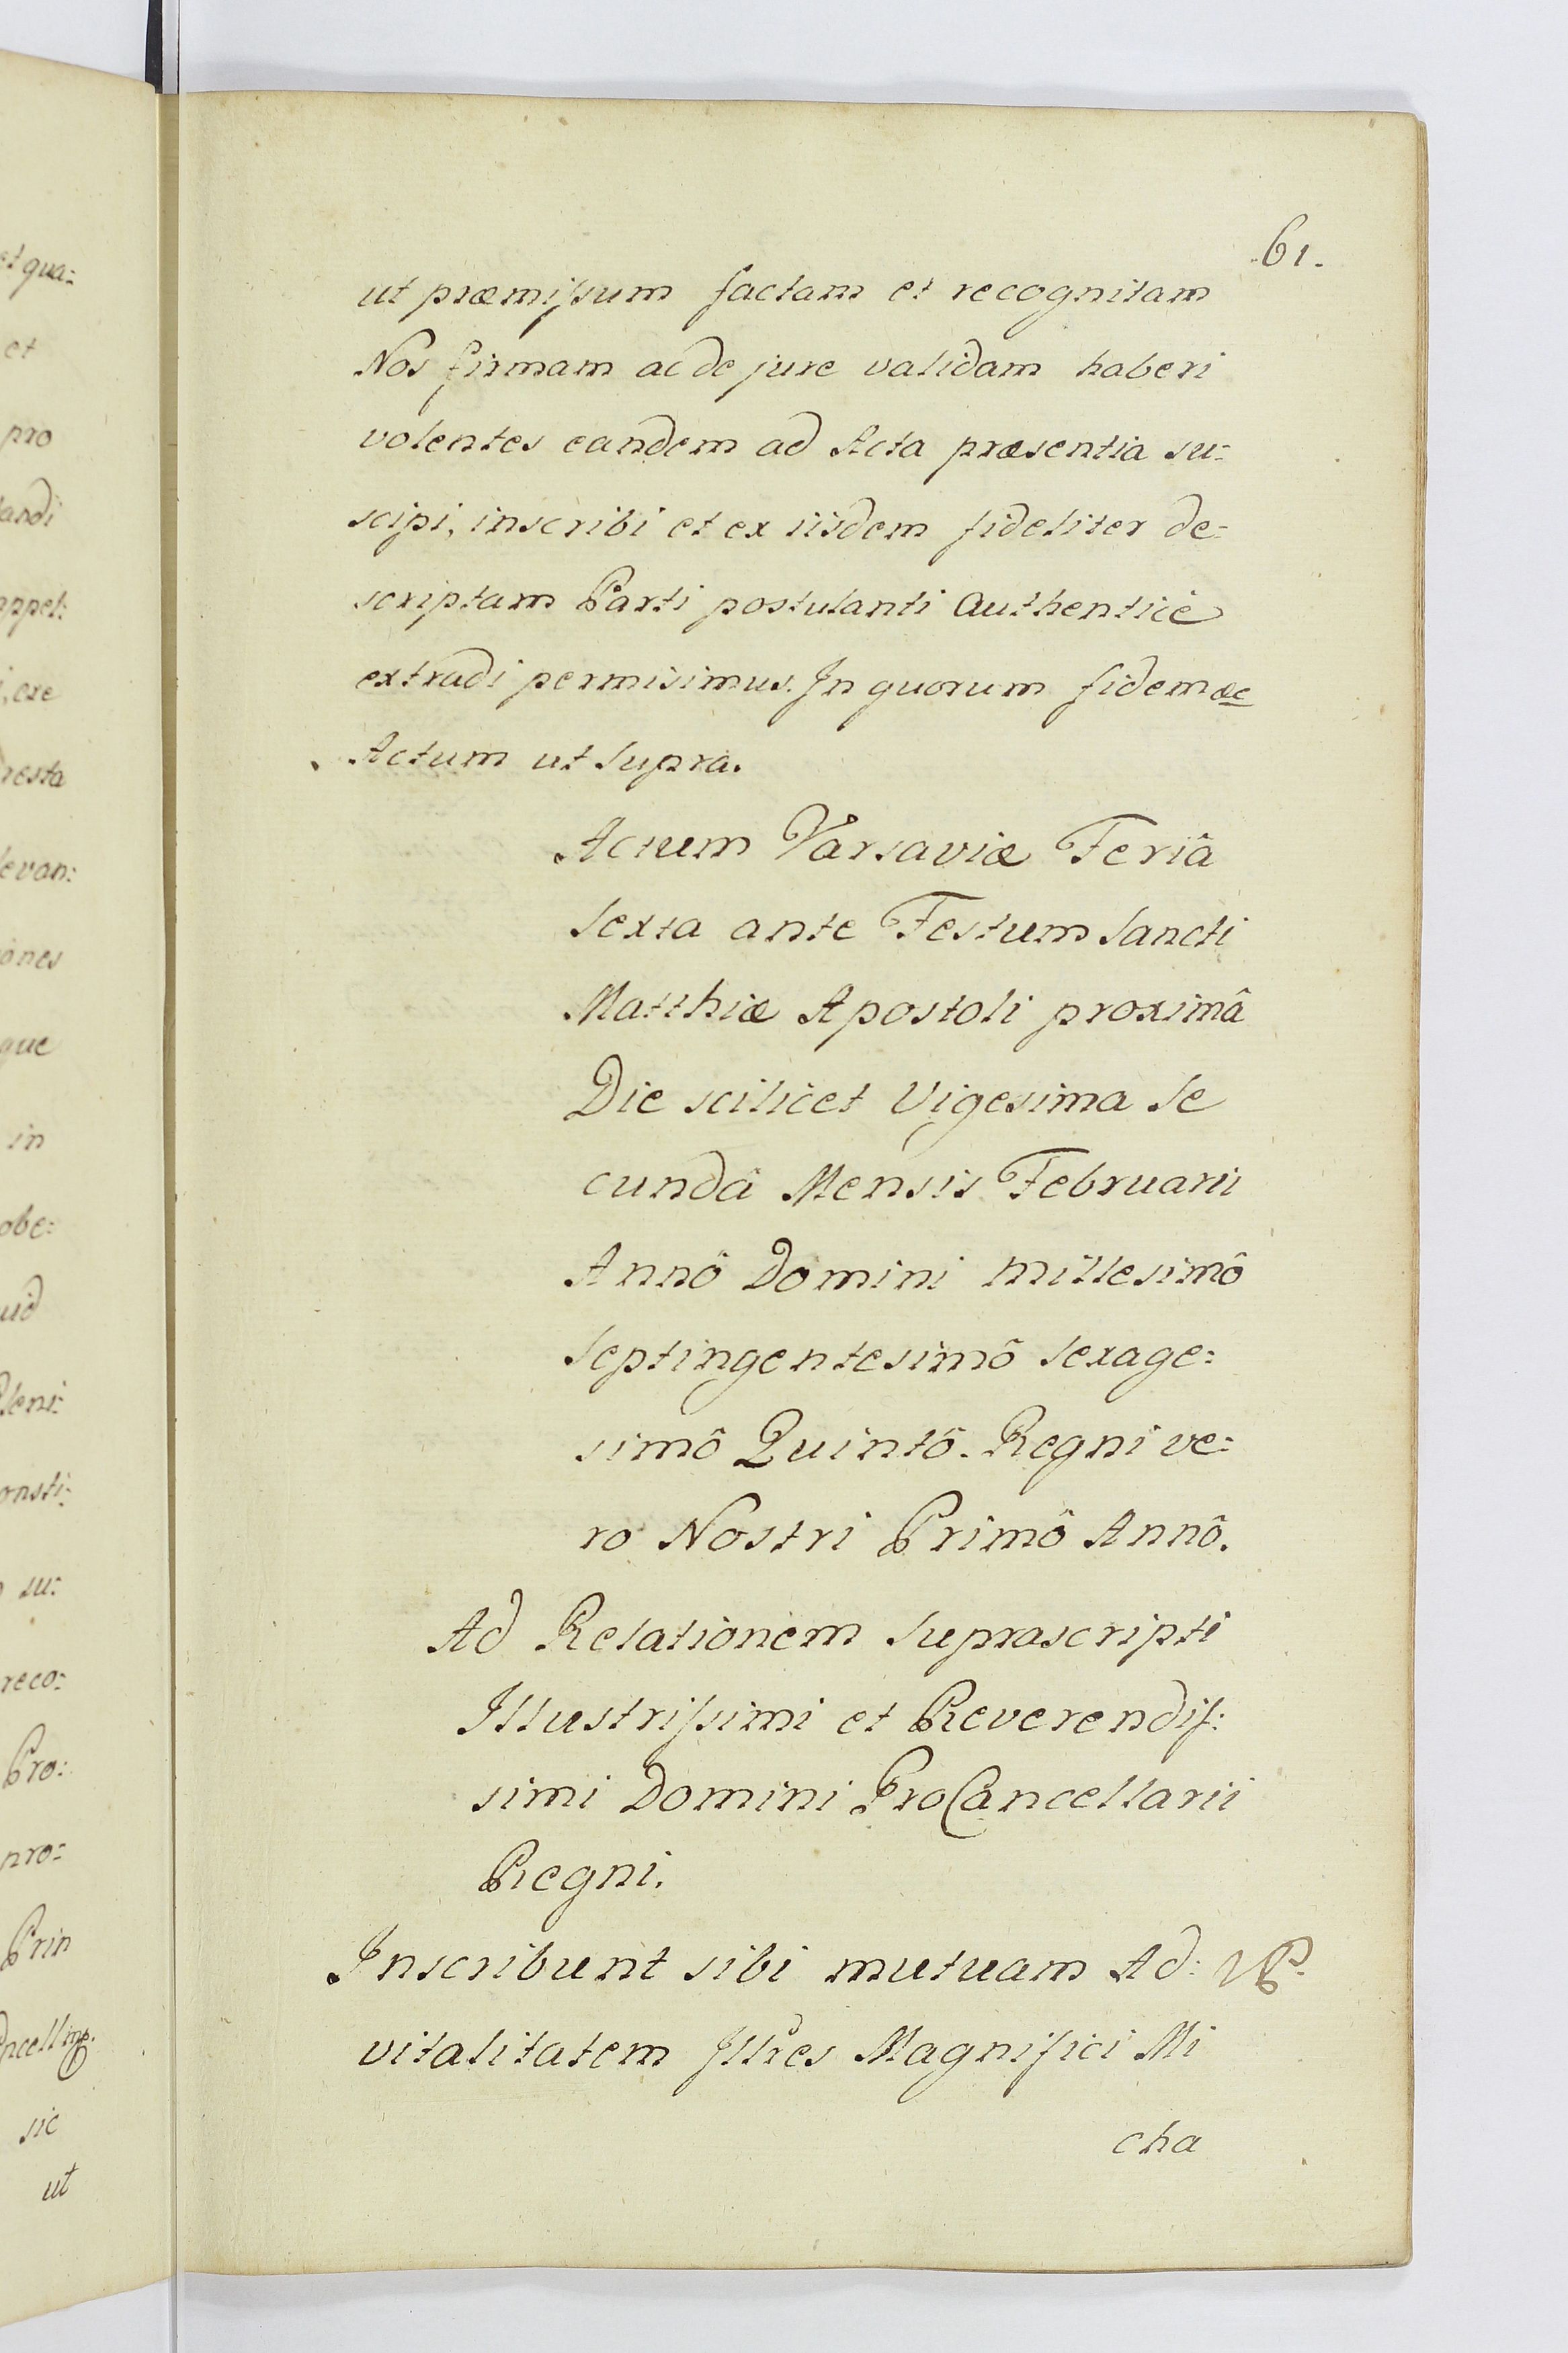 61.
ut præmissum factam et recognitam
Nos firmam ac de jure validam haberi
volentes eandem ad Acta præsentia su=
scipi, inscribi et ex iisdem fideliter de=
scriptam Parti postulanti authenticè
extradi permisimus. In quorum fidem &c
Actum ut Supra.
Actum Varsaviæ Feriâ
Sexta ante Festum Sancti
Matthiæ Apostoli proximâ
Die scilicet Vigesima Se
cundâ Mensis Februarii
Annô Domini Millesimô
Septingentesimô Sexage=
simô Quintô. Regni ve=
ro Nostri Primô Annô.
Ad Relationem Suprascripti
Illustrissimi et Reverendis=
simi Domini ProCancellarii
Regni.
Inscribunt sibi mutuam Ad:
vitalitatem Illres Magnifici Mi
cha
et qua=
et
pro
landi
appel:
, exe
resta
levan:
ones
que
in
obe=
uid
Pleni=
onsti=
su:
reco=
Pro:
pro=
Prin
sic
ut